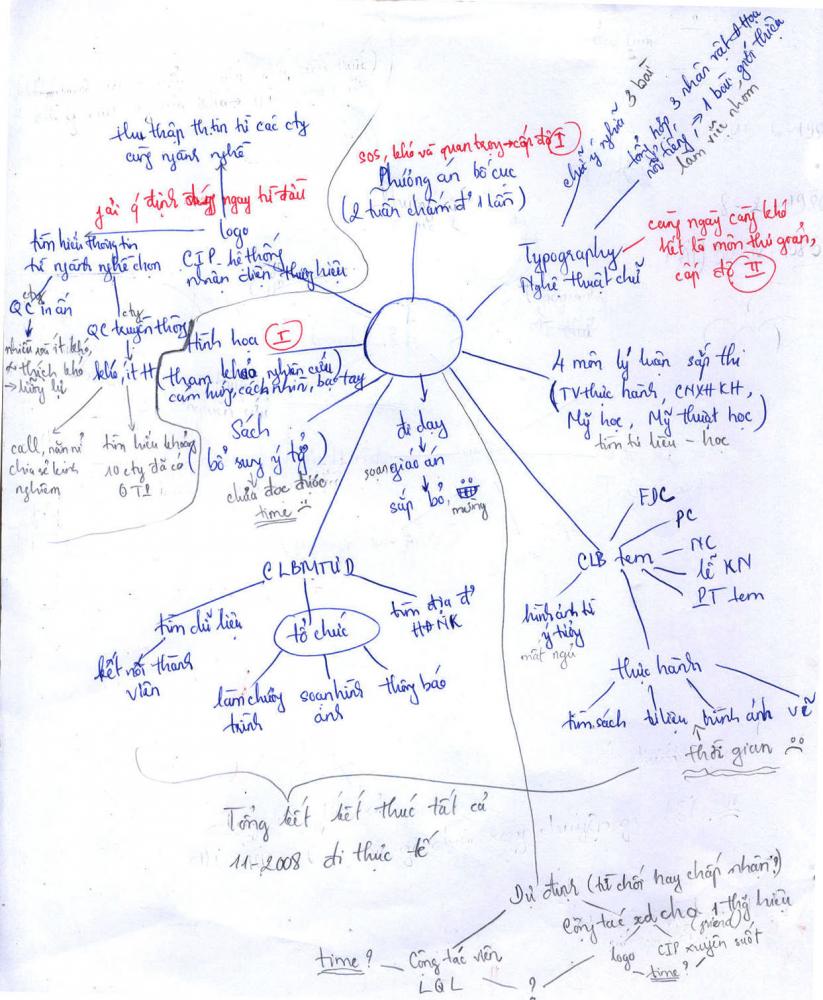 thu thập th.tin từ các cty
cùng ngành nghề
phải ý định đúng ngay từ đầu
logo
CIP - hệ thống
nhận diện thương hiệu
tìm hiểu thông tin
từ ngành nghề chọn
cty
QC in ấn
cty
QC truyền thông
khó, ít
call, năn nỉ
chia sẻ kinh
nghiệm
tìm hiểu khoảng
10 cty đã có
sos, khó và quan trọng → cấp độ I
Phương án bố cục
(2 tuần chấm đ' 1 lần)
chữ ý nghĩa 3 bài
tổng hợp 3 nhân vật
nổi tiếng, → 1 bài giới thiệu
làm việc nhóm
Typography
Nghệ thuật chữ
càng ngày càng khó
cấp độ II
Hình họa I
(tham khảo nghiên cứu
cảm hứng, cách nhìn, bạo tay
Sách
(bổ sung ý tg)
chưa đọc được...
time
đi dạy
soạn giáo án
sắp bỏ,
mừng
4 môn lý luận sắp thi
(TV thực hành, CNXHKH,
Mỹ học, Mỹ thuật học)
tìm tư liệu - học
CLBMTƯD
tìm dữ liệu
kết nối thành
viên
tổ chức
làm chương
trình
soạn hình
ảnh
thông báo
tìm địa đ'
HĐNK
CLB tem
FDC
PC
NC
lễ KN
PT tem
hình ảnh từ
ý tưởng
mất ngủ
thực hành
tìm sách
tư liệu
hình ảnh
vẽ
thời gian
Tổng kết, kết thúc tất cả
11-2008 đi thực tế
Dự định (từ chối hay chấp nhận?)
Cộng tác xd cho 1 thg hiệu
(friend)
logo
CIP xuyên suốt
time?
Cộng tác viên
LQL
time?
?